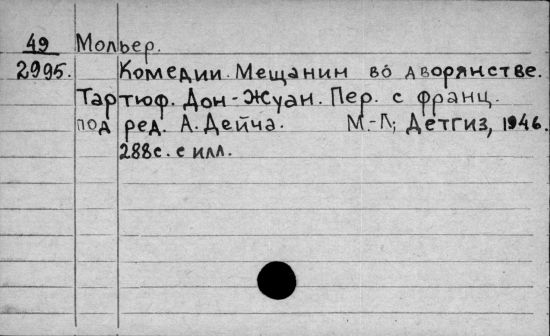 49 Мольер.
2995. Комедии. Мещанин во дворянстве.
Тартюф. Дон-Жуан. Пер. с франц.
под ред. А. Дейча. М.-Л; Детгиз, 1946.
288с. с илл.